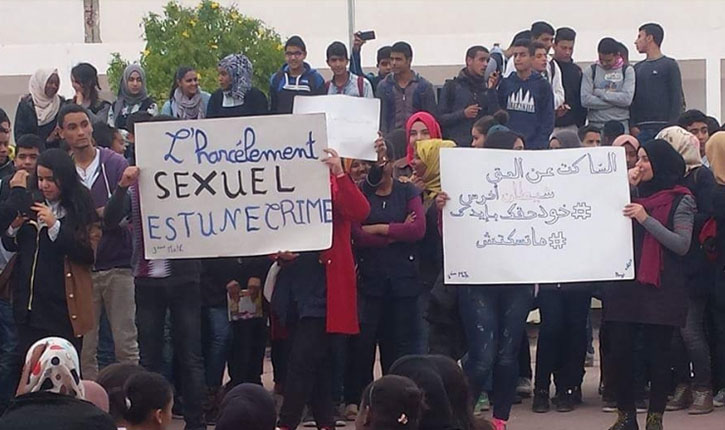 L'harcélement
SEXUEL
EST UNE CRIME
3ème Math
السّاكت عن الحق
شيطان أخرس
#خوذ حقك بإيدك
#ماتسكتش